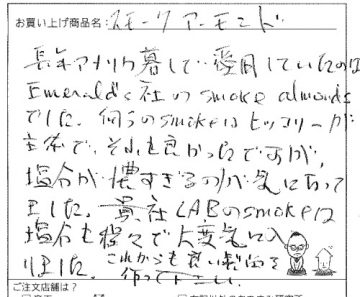 お買い上げ商品名：スモークアーモンド
長年アメリカ暮しで愛用していたのは
Emerald's社のsmoke almonds
でした。何らのsmokeはヒッコリーが
主体で、それも良かったですが、
塩分が濃すぎるのが気になって
ました。貴社LABのsmokeは
塩分も程々で大変気に入
りました。これからも良い製品を
作って下さい。
ご注文店舗は？